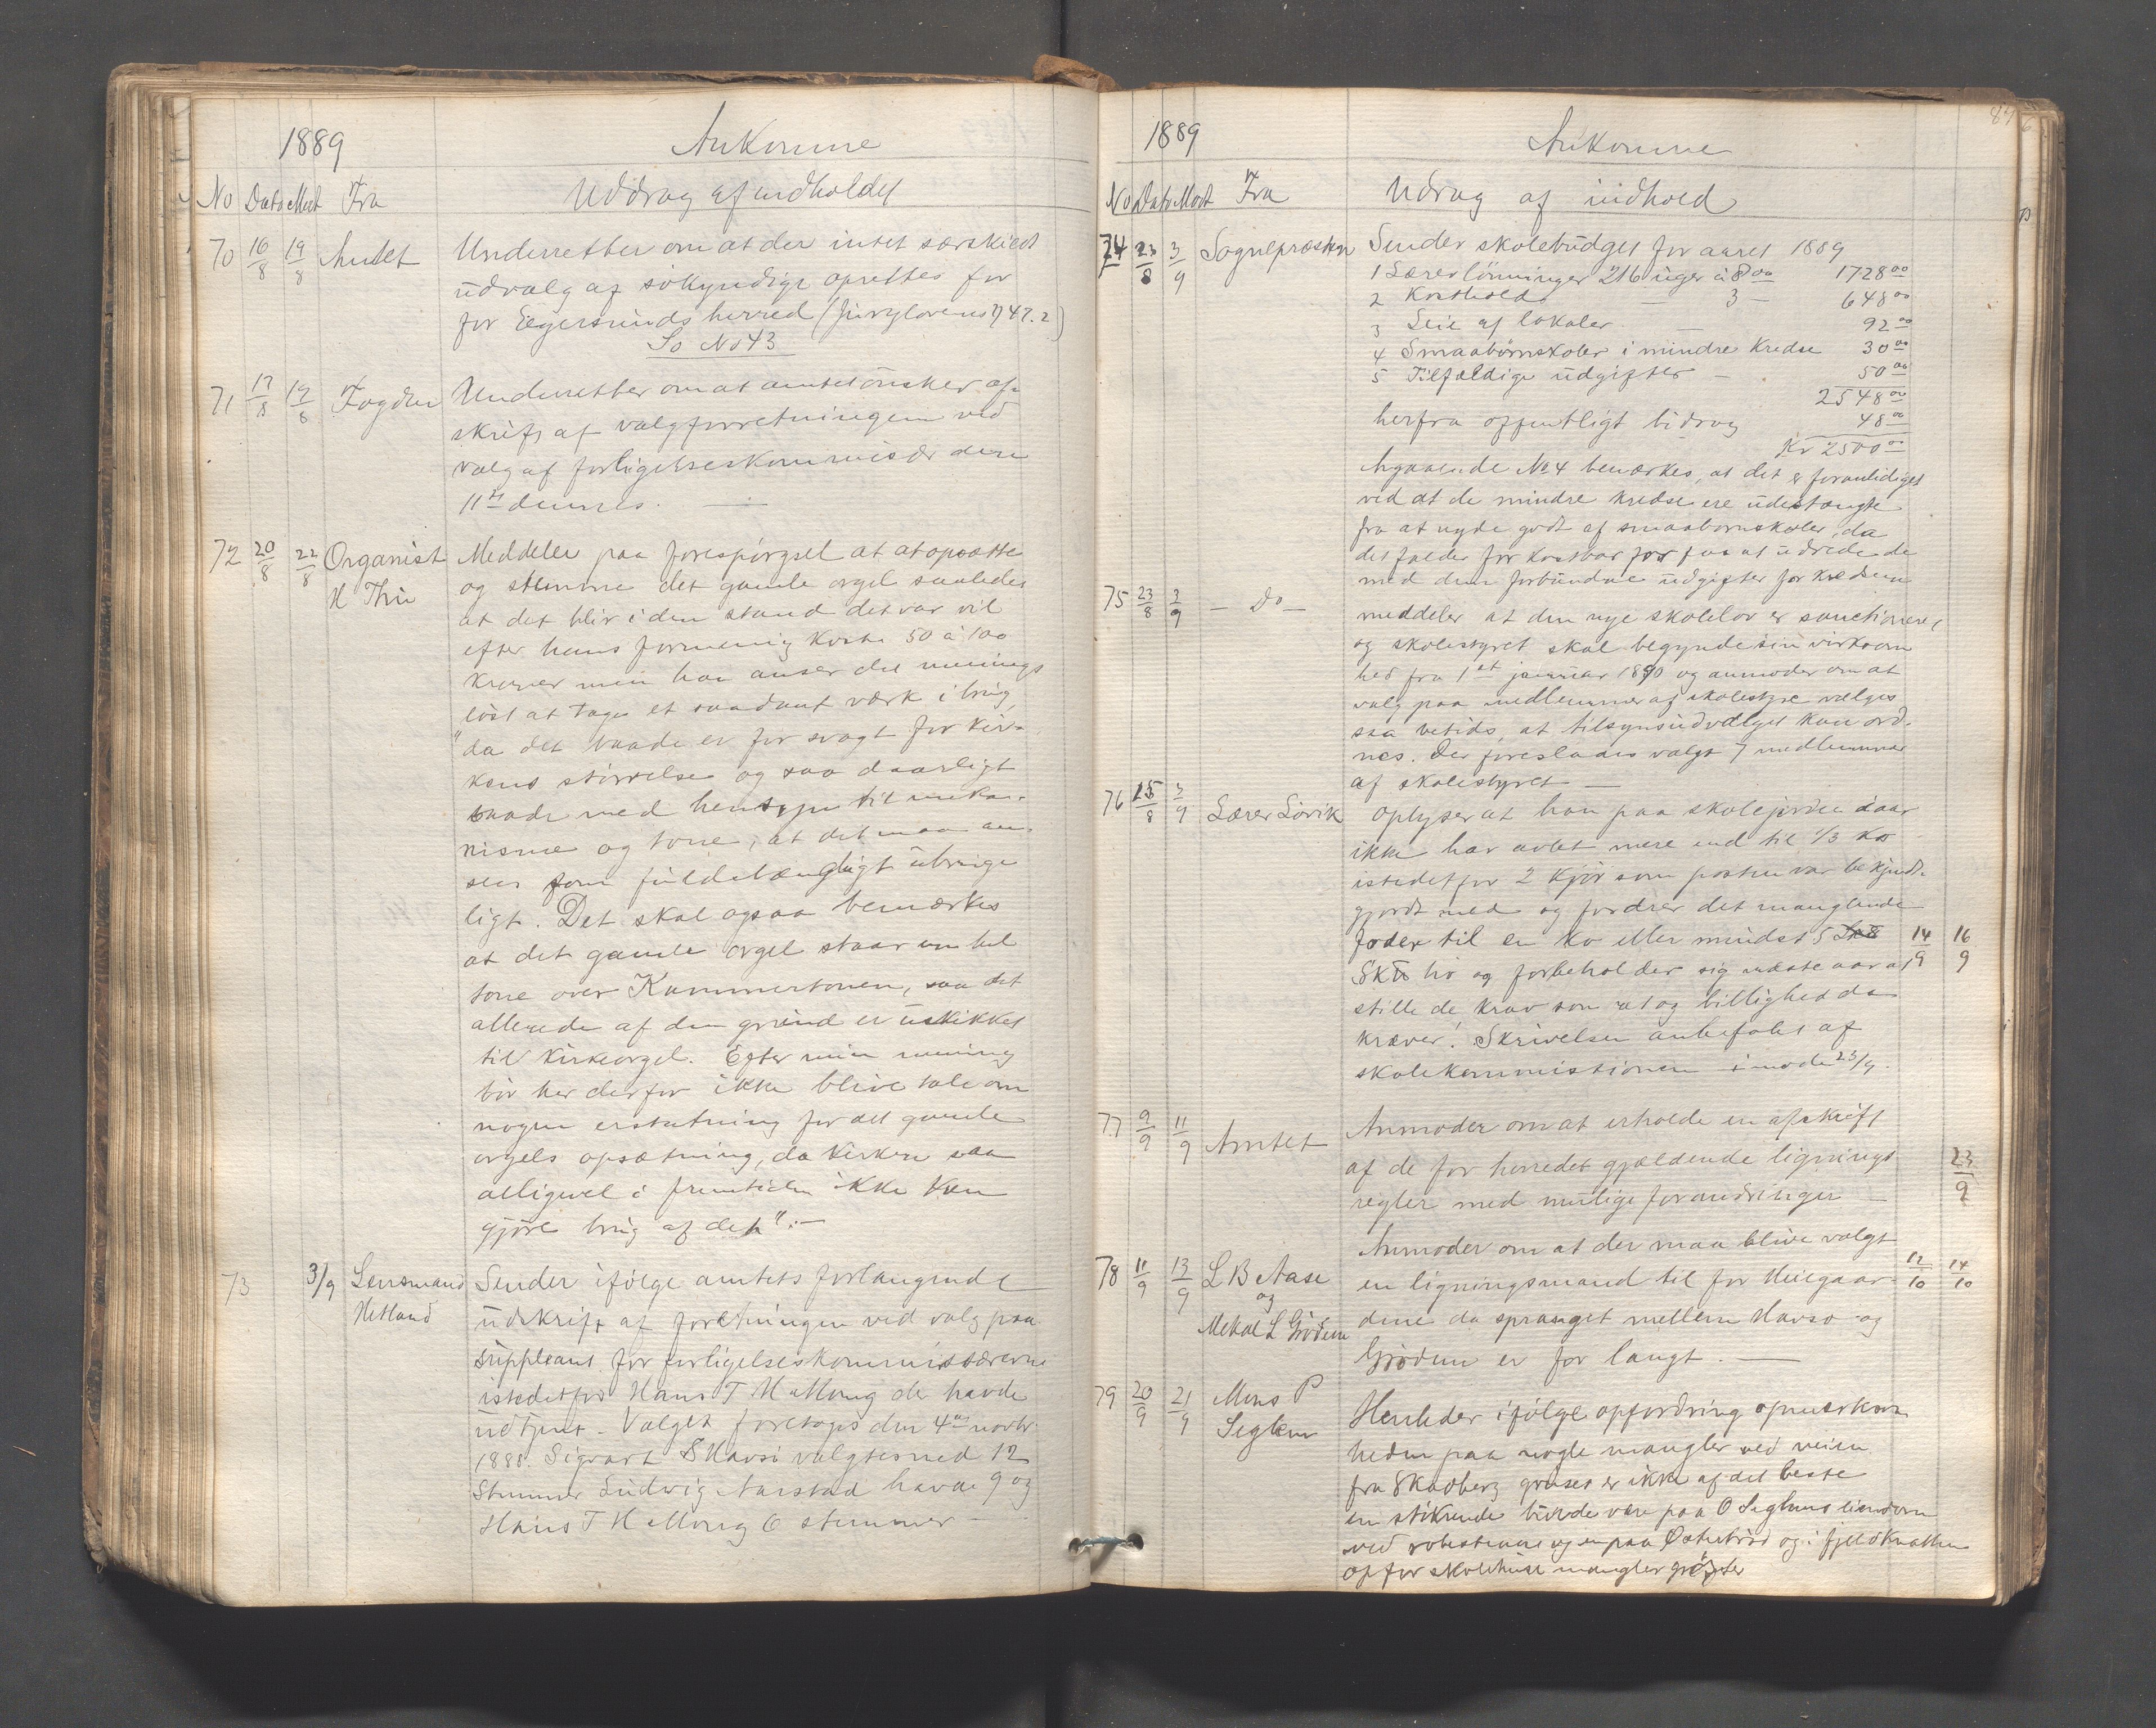 1889 Ankomne
No Dato Mot Fra Uddrag af indholdet
70 16/8 19/8 Amtet Underretter om at der intet særskiedt
udvalg af søkyndige oprettes for
for Egersunds herred (Jurylovens § 47.2)
So No 43
71 17/8 19/8 Fogden Underretter om at amtet ønsker af-
skrift af valgforretningen ved
valg af forligelseskommissær den
11te dennes.
72 20/8 22/8 Organist Meddeler paa forespørgsel at at opsætte
H Thu og stemme det gamle orgel saaledes
at det blir i den stand det var vil
efter hans formening koste 50 à 100
kroner men han anser det menings
løst at tage et saadant værk i brug
"da det baade er for svagt for kir-
kens størrelse og saa daarligt
baade med hensyn til meka-
nisme og tone, at det maa an-
sees som fuldstændigt ubruge
ligt. Det skal ogsaa bemærkes
at det gamle orgel staar en hel
tone over Kammertonen, saa det
allerede af den grund er uskikket
til kirkeorgel. Efter min mening
bør her derfor ikke blive tale om
nogen erstatning for det gamle
orgels opsætning, da kirken saa
alligevel i fremtiden ikke kan
gjøre brug af det".—
73 3/9 Lensmand Sender ifølge amtets forlangende
Hetland udskrift af forretningen ved valg paa
suppleant for forligelseskommissærerne
istedetfor Hans T H Mong der havde
udtjent. Valget foretoges den 4de novbr
1888. Sigvart S Havsø valgtes med 12
Stemmer Ludvig Aarstad havde 9 og
Hans T H Mong 6 stemmer —
1889 Ankomne
No Dato Mot Fra Udrag af indhold
74 23/8 3/9 Sognepræsten Sender skolebudget for aaret 1889
1 Lærerlønninger 216 uger à 8 00 1728 00
2 Kosthold — 3 — 648 00
3 Leie af lokaler — 92 00
4 Smaabørnskoler i mindre Kredse 30 00
5 Tilfældige udgifter — 50 00
2548 00
herfra offentligt bidrag 48 00
Kr 2500 00
Angaaende No 4 bemærkes, at det er foranlediget
ved at de mindre kredse ere udestængte
fra at nyde godt af smaabornskoler, da
det falder for kostbar for faa at udrede de
med dem forbundne udgifter for kredsen
75 23/8 3/9 — Do — meddeler at den nye skolelov er sanctioneret
og skolestyret skal begynde sin virksom
hed fra 1st januar 1890 og anmoder om at
valg paa medlemmer af skolestyre vælges
saa betids, at tilsynsudvalget kan ord-
nes. Der foreslaaes valgt 7 medlemmer
af skolestyret —
76 25/8 3/9 Lærer Løvik Oplyser at han paa skolejorden iaar
ikke har avlet mere end til 1/3 ko
istedetfor 2 kjør som posten var bekjendt-
gjordt med og fordrer det manglende
foder til en ko eller mindst 5 14/9 16/9
Sk℔ hø og forbeholder sig næste aar at
stille de krav som ret og billighed da
kræver! Skrivelsen anbefalet af
skolekommissionen i møde 23/9.
77 9/9 11/9 Amtet Anmoder om at erholde en afskrift
af de for herredet gjældende lignings 23/9
regler med mulige forandringer —
78 11/9 13/9 L B Aase Anmoder om at der maa blive valgt
og en ligningsmand til for Heiegaar- 12/10 14/10
Mikal L Grødem dene da spranget mellem Havsø og
Grødem er for langt. —
79 20/9 21/9 Mons P Henleder ifølge opfordring opmærksom
Seglem heden paa nogle mangler ved veien
fra Skadberg gruset er ikke af det beste
en stikrende burde være paa O Seglems eiendom
ved og en paa Østerbrød og i fjeldknatten
op for skolehuse mangler grøfter